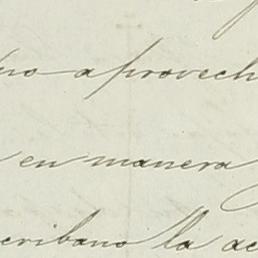 pro aprovech
en manera
cribano la ac